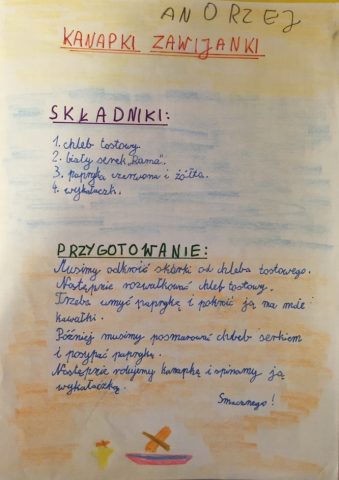 ANDRZEJ
KANAPKI ZAWIJANKI
SKŁADNIKI:
1. chleb tostowy.
2. biały serek „Rama”.
3. papryka czerwona i żółta.
4. wykałaczki.
PRZYGOTOWANIE:
Musimy odkroić skórki od chleba tostowego.
Następnie rozwałkować chleb tostowy.
Trzeba umyć paprykę i pokroić ją na małe
kawałki.
Później musimy posmarować chleb serkiem
i posypać papryką.
Następnie rolujemy kanapkę i spinamy ją
wykałaczką.
Smacznego!